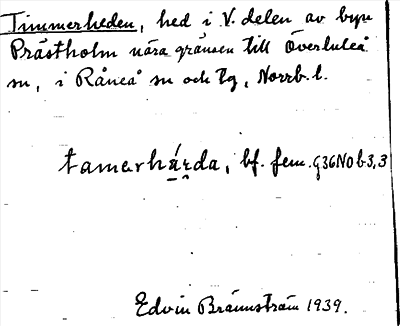 Timmerheden, hed i V. delen av byn
Prästholm nära gränsen till Överluleå
sn, i Råneå sn och tg, Norrb. l.
tamerhárda, bf. fem. G36NOb3,3
Edvin Brännström 1939.